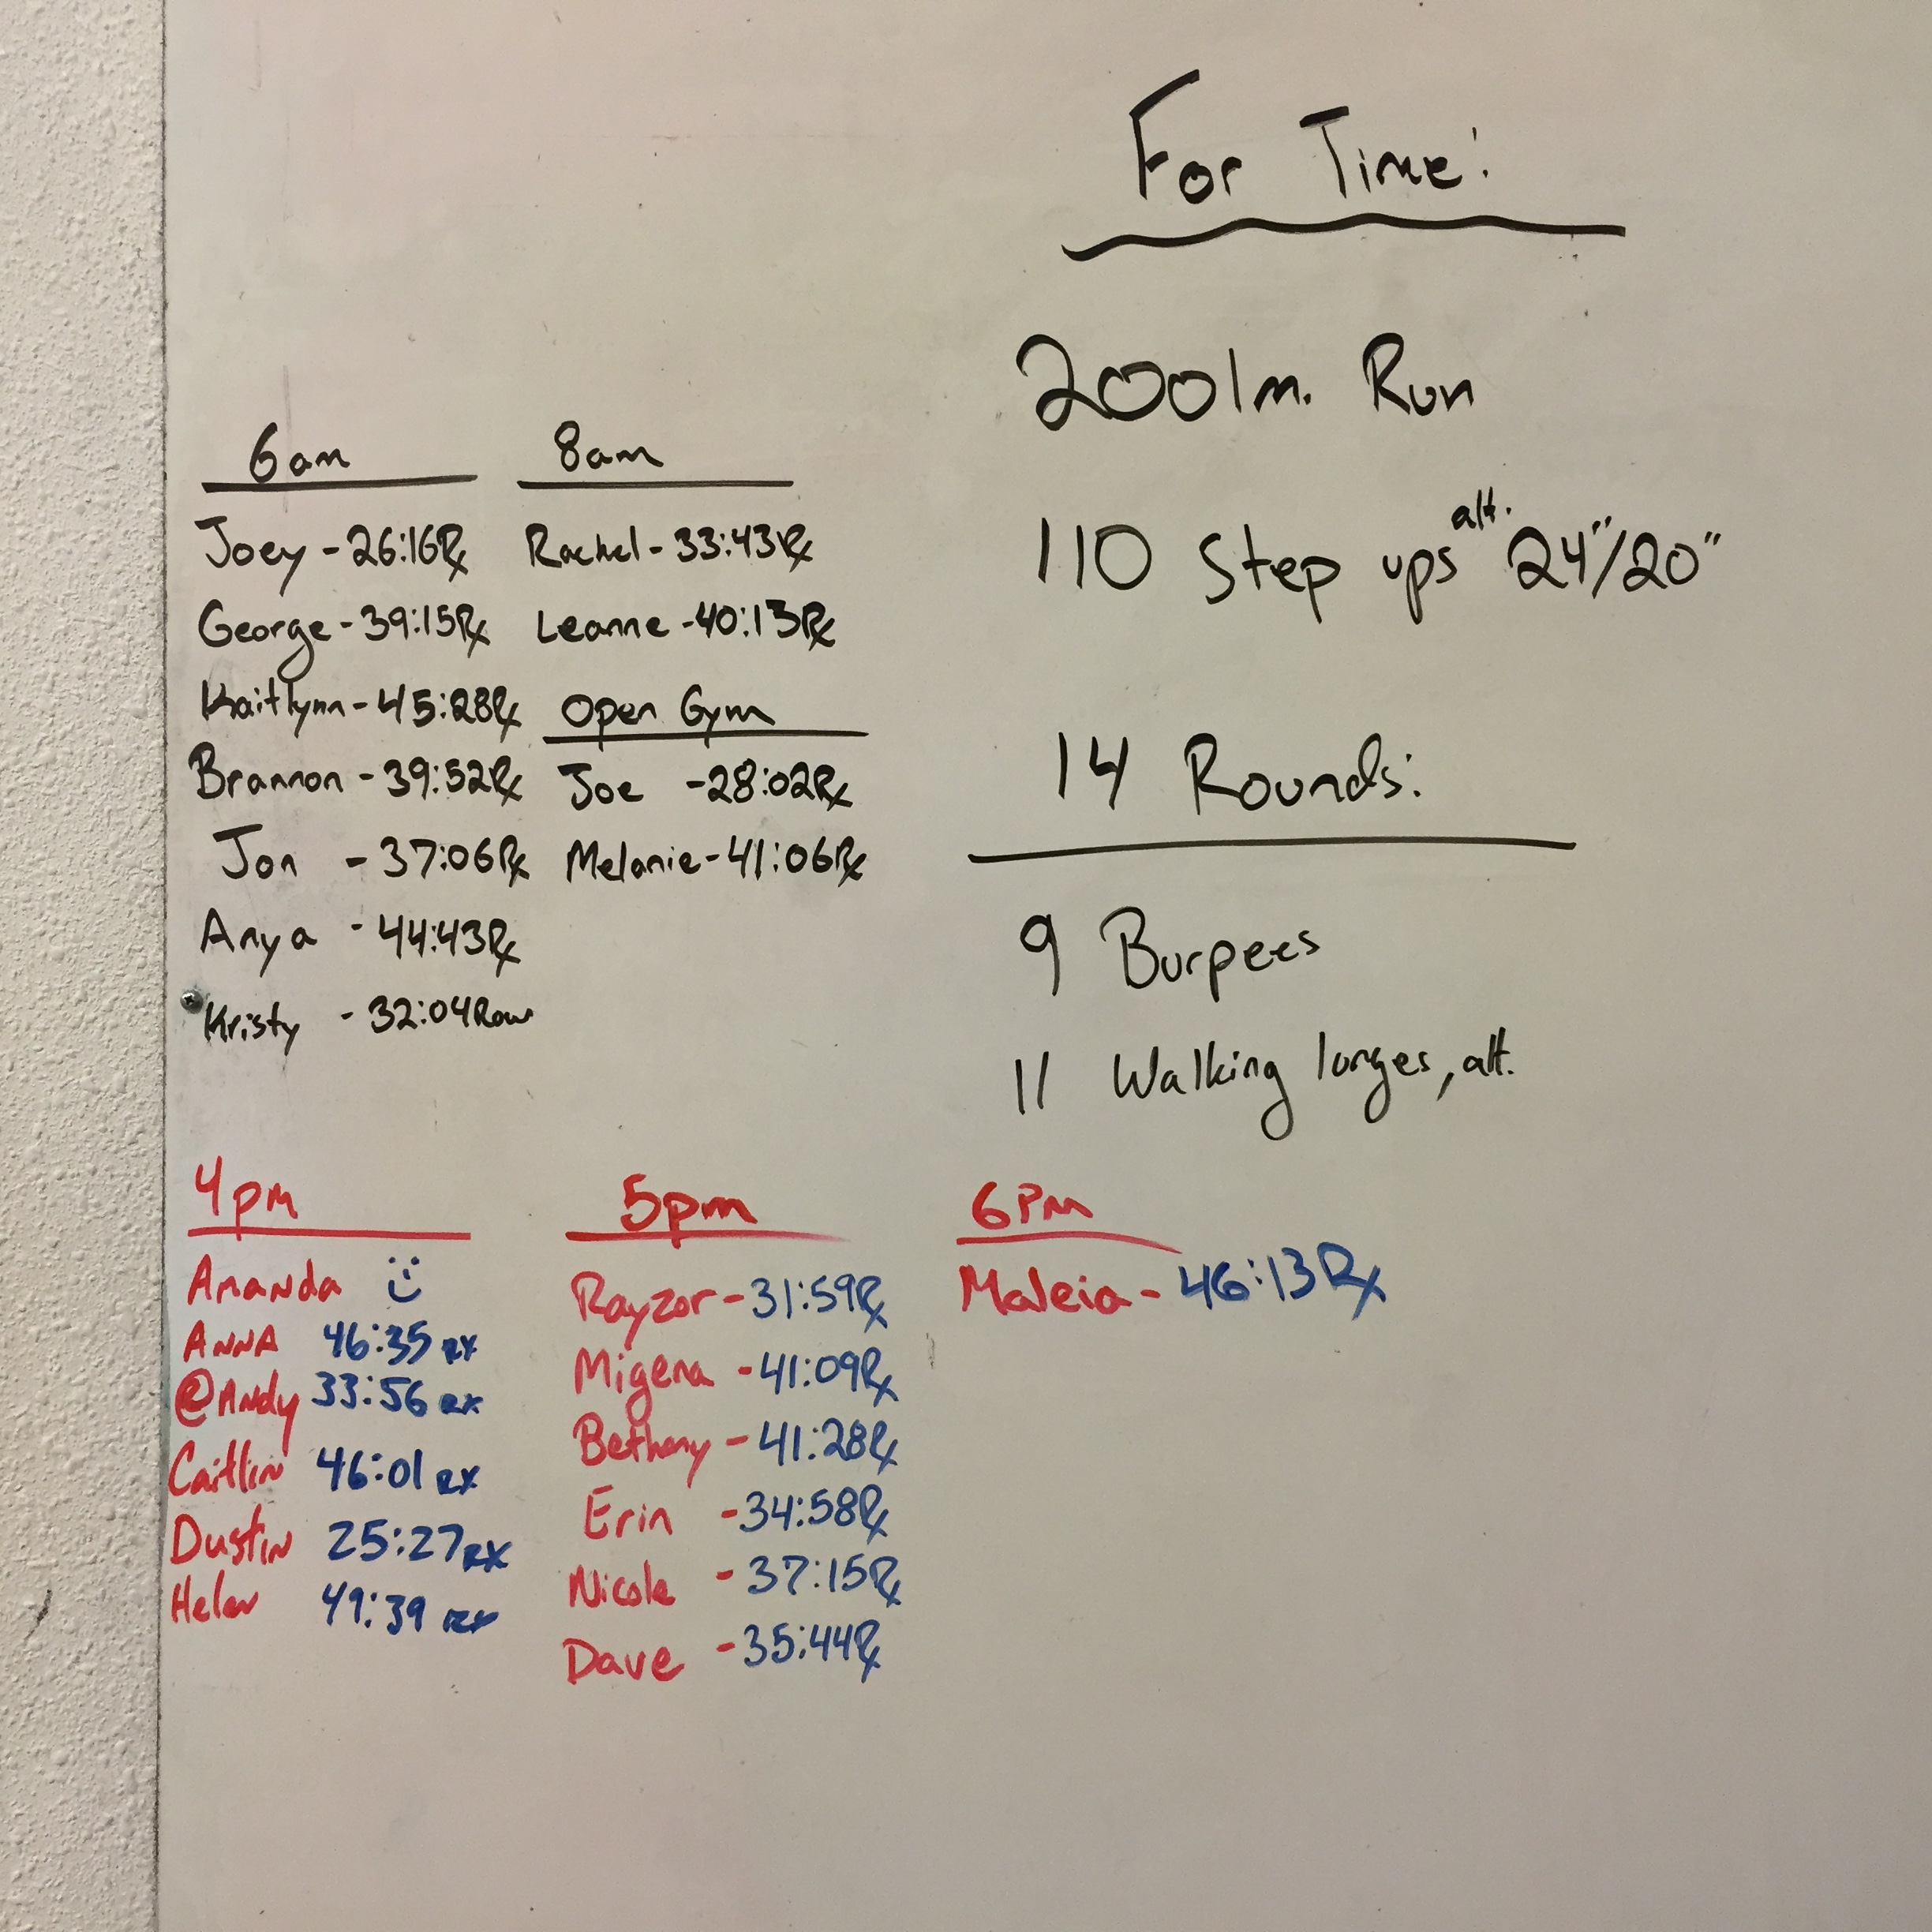 For Time:
2001m. Run
110 Step ups alt. 24"/20"
14 Rounds:
9 Burpees
11 Walking lunges, alt.
6am
Joey - 26:16 Rx
George - 39:15 Rx
Kaitlynn - 45:28 Rx
Brannon - 39:52 Rx
Jon - 37:06 Rx
Anya - 44:43 Rx
Kristy - 32:04 Row
8am
Rachel - 33:43 Rx
Leanne - 40:13 Rx
Open Gym
Joe - 28:02 Rx
Melanie - 41:06 Rx
4pm
Amanda
ANNA 46:35 RX
@Andy 33:56 RX
Caitlin 46:01 RX
Dustin 25:27 RX
Helen RX
5pm
Rayzor - 31:59 Rx
Migena - 41:09 Rx
Bethany - 41:28 Rx
Erin - 34:58 Rx
Nicole - 37:15 Rx
Dave - 35:44 Rx
6PM
Maleia - 46:13 Rx